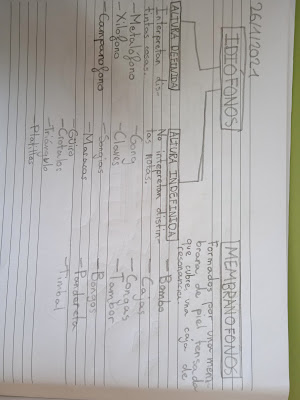 26/1/2021
IDIÓFONOS
ALTURA DEFINIDA
Interpretan dis-
tintas notas.
-Metalófono
-Xilófono
-Campanófono
ALTURA INDEFINIDA
No intepretan distin-
tas notas.
-Gong
-Claves
-Sonajas
-Maracas
-Güiro
-Crótalos
-Triángulo
-Platillos
MEMBRANÓFONOS
Formados por una mem-
brana de piel tensada
que cubre una caja de
resonancia.
-Bombo
-Cajas
-Congas
-Tambor
-Bongos
-Pandereta
-Timbal